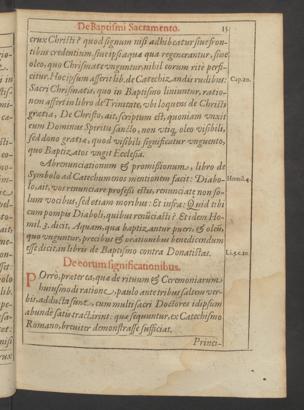 De Baptismi Sacramento. 15
crux Christi? quod signum nisi adhibeatur siue fron-
tibus credentium, siue ipsi aquæ qua regenerantur, siue
oleo, quo Chrismate vnguntur, nihil eorum rite perfi-
citur. Hoc ipsum asserit lib. de Catechiz. andis rudibus: Cap. 20.
Sacri Chrismatis, quo in Baptismo liniuntur, ratio-
nem assert in libro de Trinitate, vbi loquens de Christi
gratia, De Christo, ait, scriptum est, quoniam vnxit
eum Dominus Spiritu sancto, non vtiq. oleo visibili,
sed dono gratiæ, quod visibili significatur vnguento,
quo Baptizatos vngit Ecclesia.
Abrenunciationum & promissionum, libro de
Symbolo ad Catechumenos mentionem facit: Diabo- Homil. 4.
lo, ait, vos renunciare professi estis, renunciate non so-
lum vocibus, sed etiam moribus: Et infra: Quid tibi
cum pompis Diaboli, quibus renuciasti? Et idem Ho-
mil. 3. dicit, Aquam, qua baptizantur pueri, & oleū,
quo vnguntur, precibus & orationibus benedicendum
esse dicit in libris de Baptismo contra Donatistas. Li. 5. c. 20.
De eorum significationibus.
POrrò, præterea, quæ de rituum & Ceremoniarum
huiusmodi ratione, paulo ante tribus saltem ver-
bis, adducta sunt, cum multi sacri Doctores id ipsum
abundè satis tractarint: quæ sequuntur, ex Catechismo
Romano, breuiter demonstrasse sufficiat.
Princi-